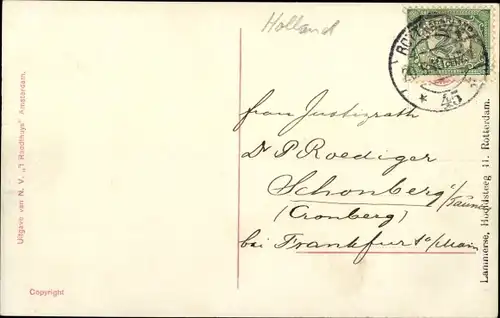 Holland
ROTTERDAM
45
frau Justizrath
Dr P Roediger
Schonberg i/Taunus
(Cronberg)
bei Frankfurt a/Main
Uitgave van N. V. „'t Raedthuys" Amsterdam.
Copyright
Lammerse, Hoofdsteeg 11. Rotterdam.